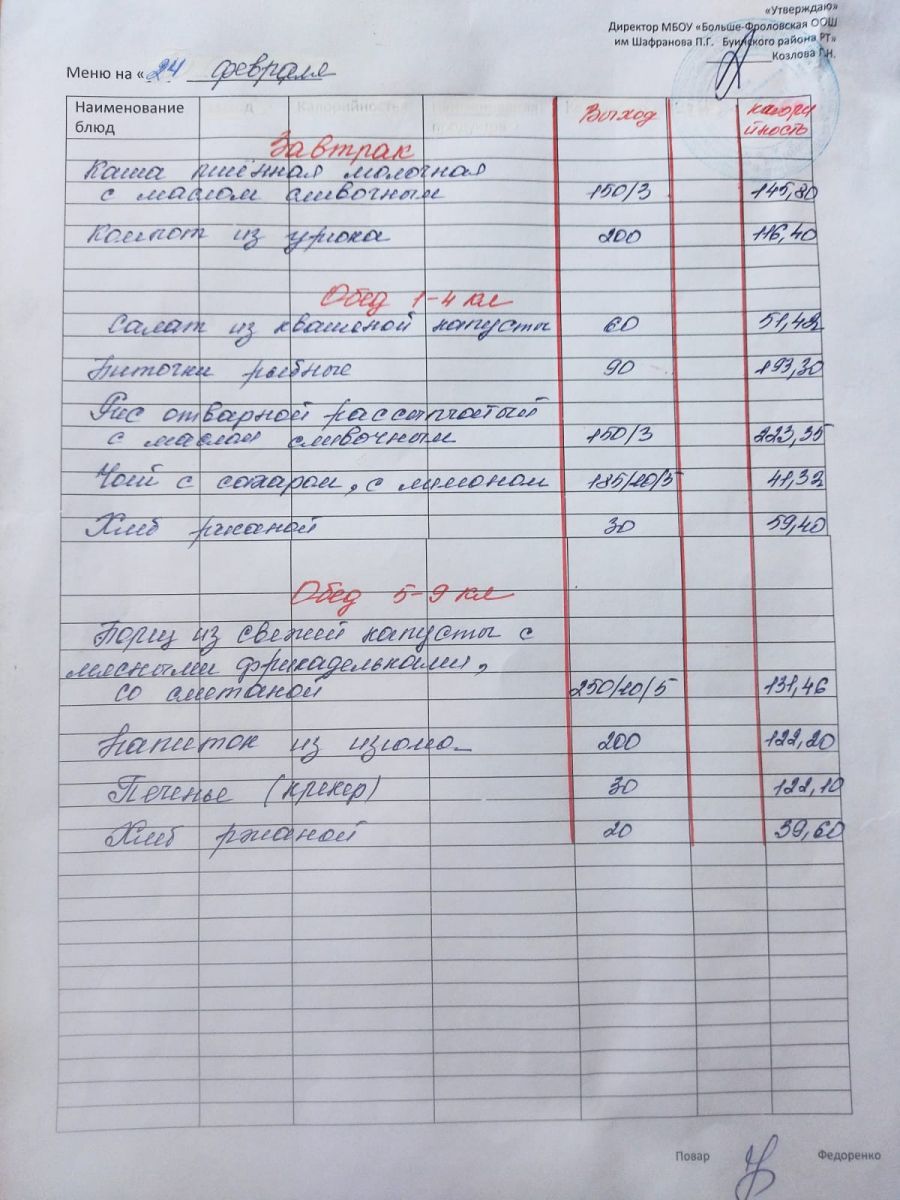 «Утверждаю»
Директор МБОУ «Больше-Фроловская ООШ
им Шафранова П.Г. Буинского района РТ»
Козлова Г.Н.
Меню на «24 февраля
Наименование блюд Выход калорийность
Завтрак
Каша пшённая молочная
с маслом сливочным 150/3 145,80
Компот из урюка 200 116,40
Обед 1-4 кл
Салат из квашеной капусты 60 51,42
Биточки рыбные 90 193,30
Рис отварной рассыпчатый
с маслом сливочным 150/3 223,35
Чай с сахаром, с лимоном 185/10/5 41,32
Хлеб ржаной 30 59,40
Обед 5-9 кл
Борщ из свежей капусты с
мясными фрикадельками,
со сметаной 250/10/5 131,46
Напиток из изюма 200 122,20
Печенье (крекер) 30 122,10
Хлеб ржаной 20 39,60
Повар Федоренко